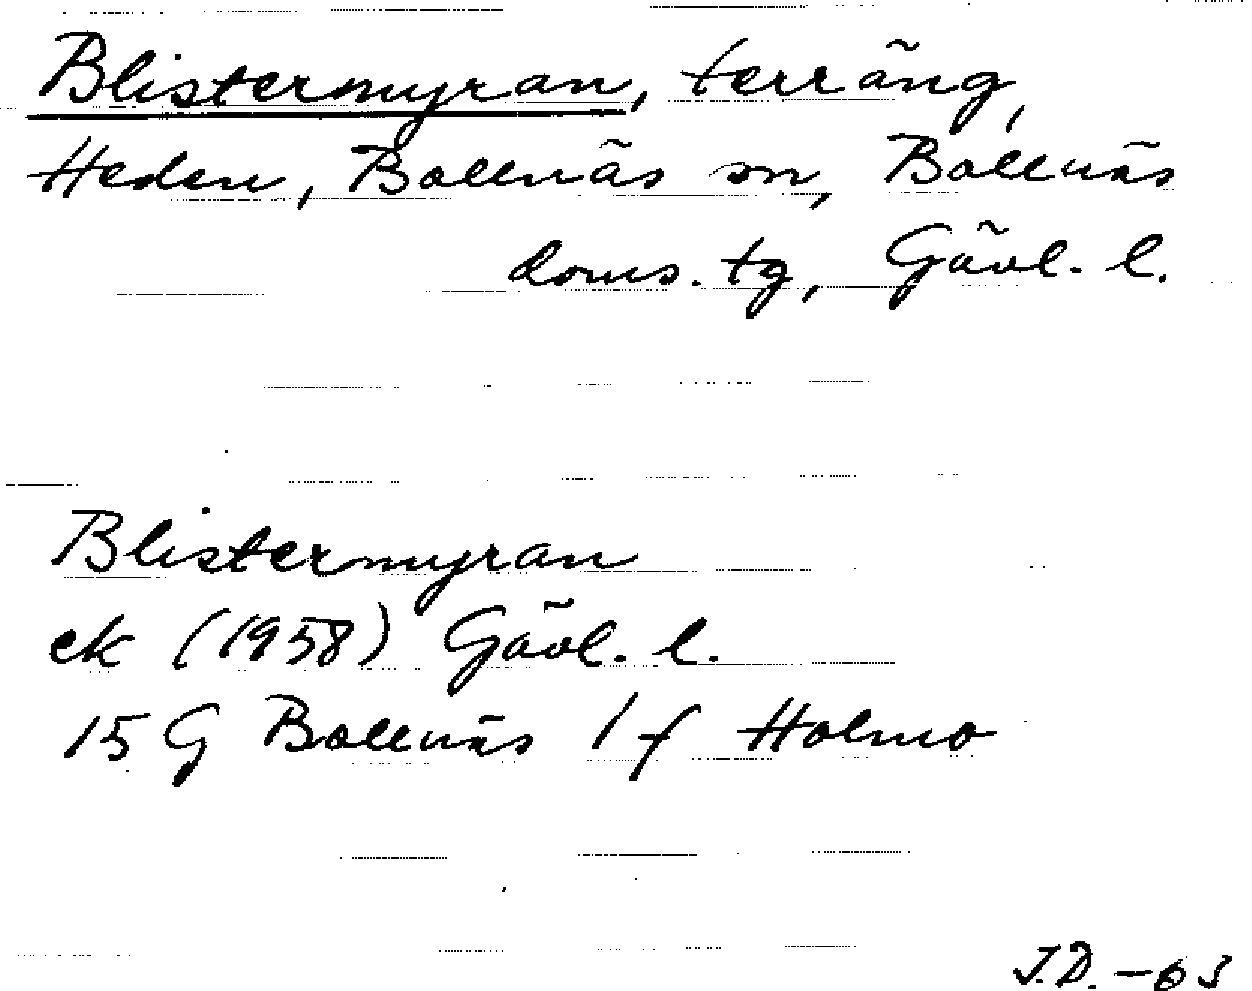 Blistermyran, terräng,
Heden, Bollnäs sn, Bollnäs
doms. tg, Gävl. l.
Blistermyran
ek (1958) Gävl. l.
15 G Bollnäs 1 f Holmo
J.D. -63